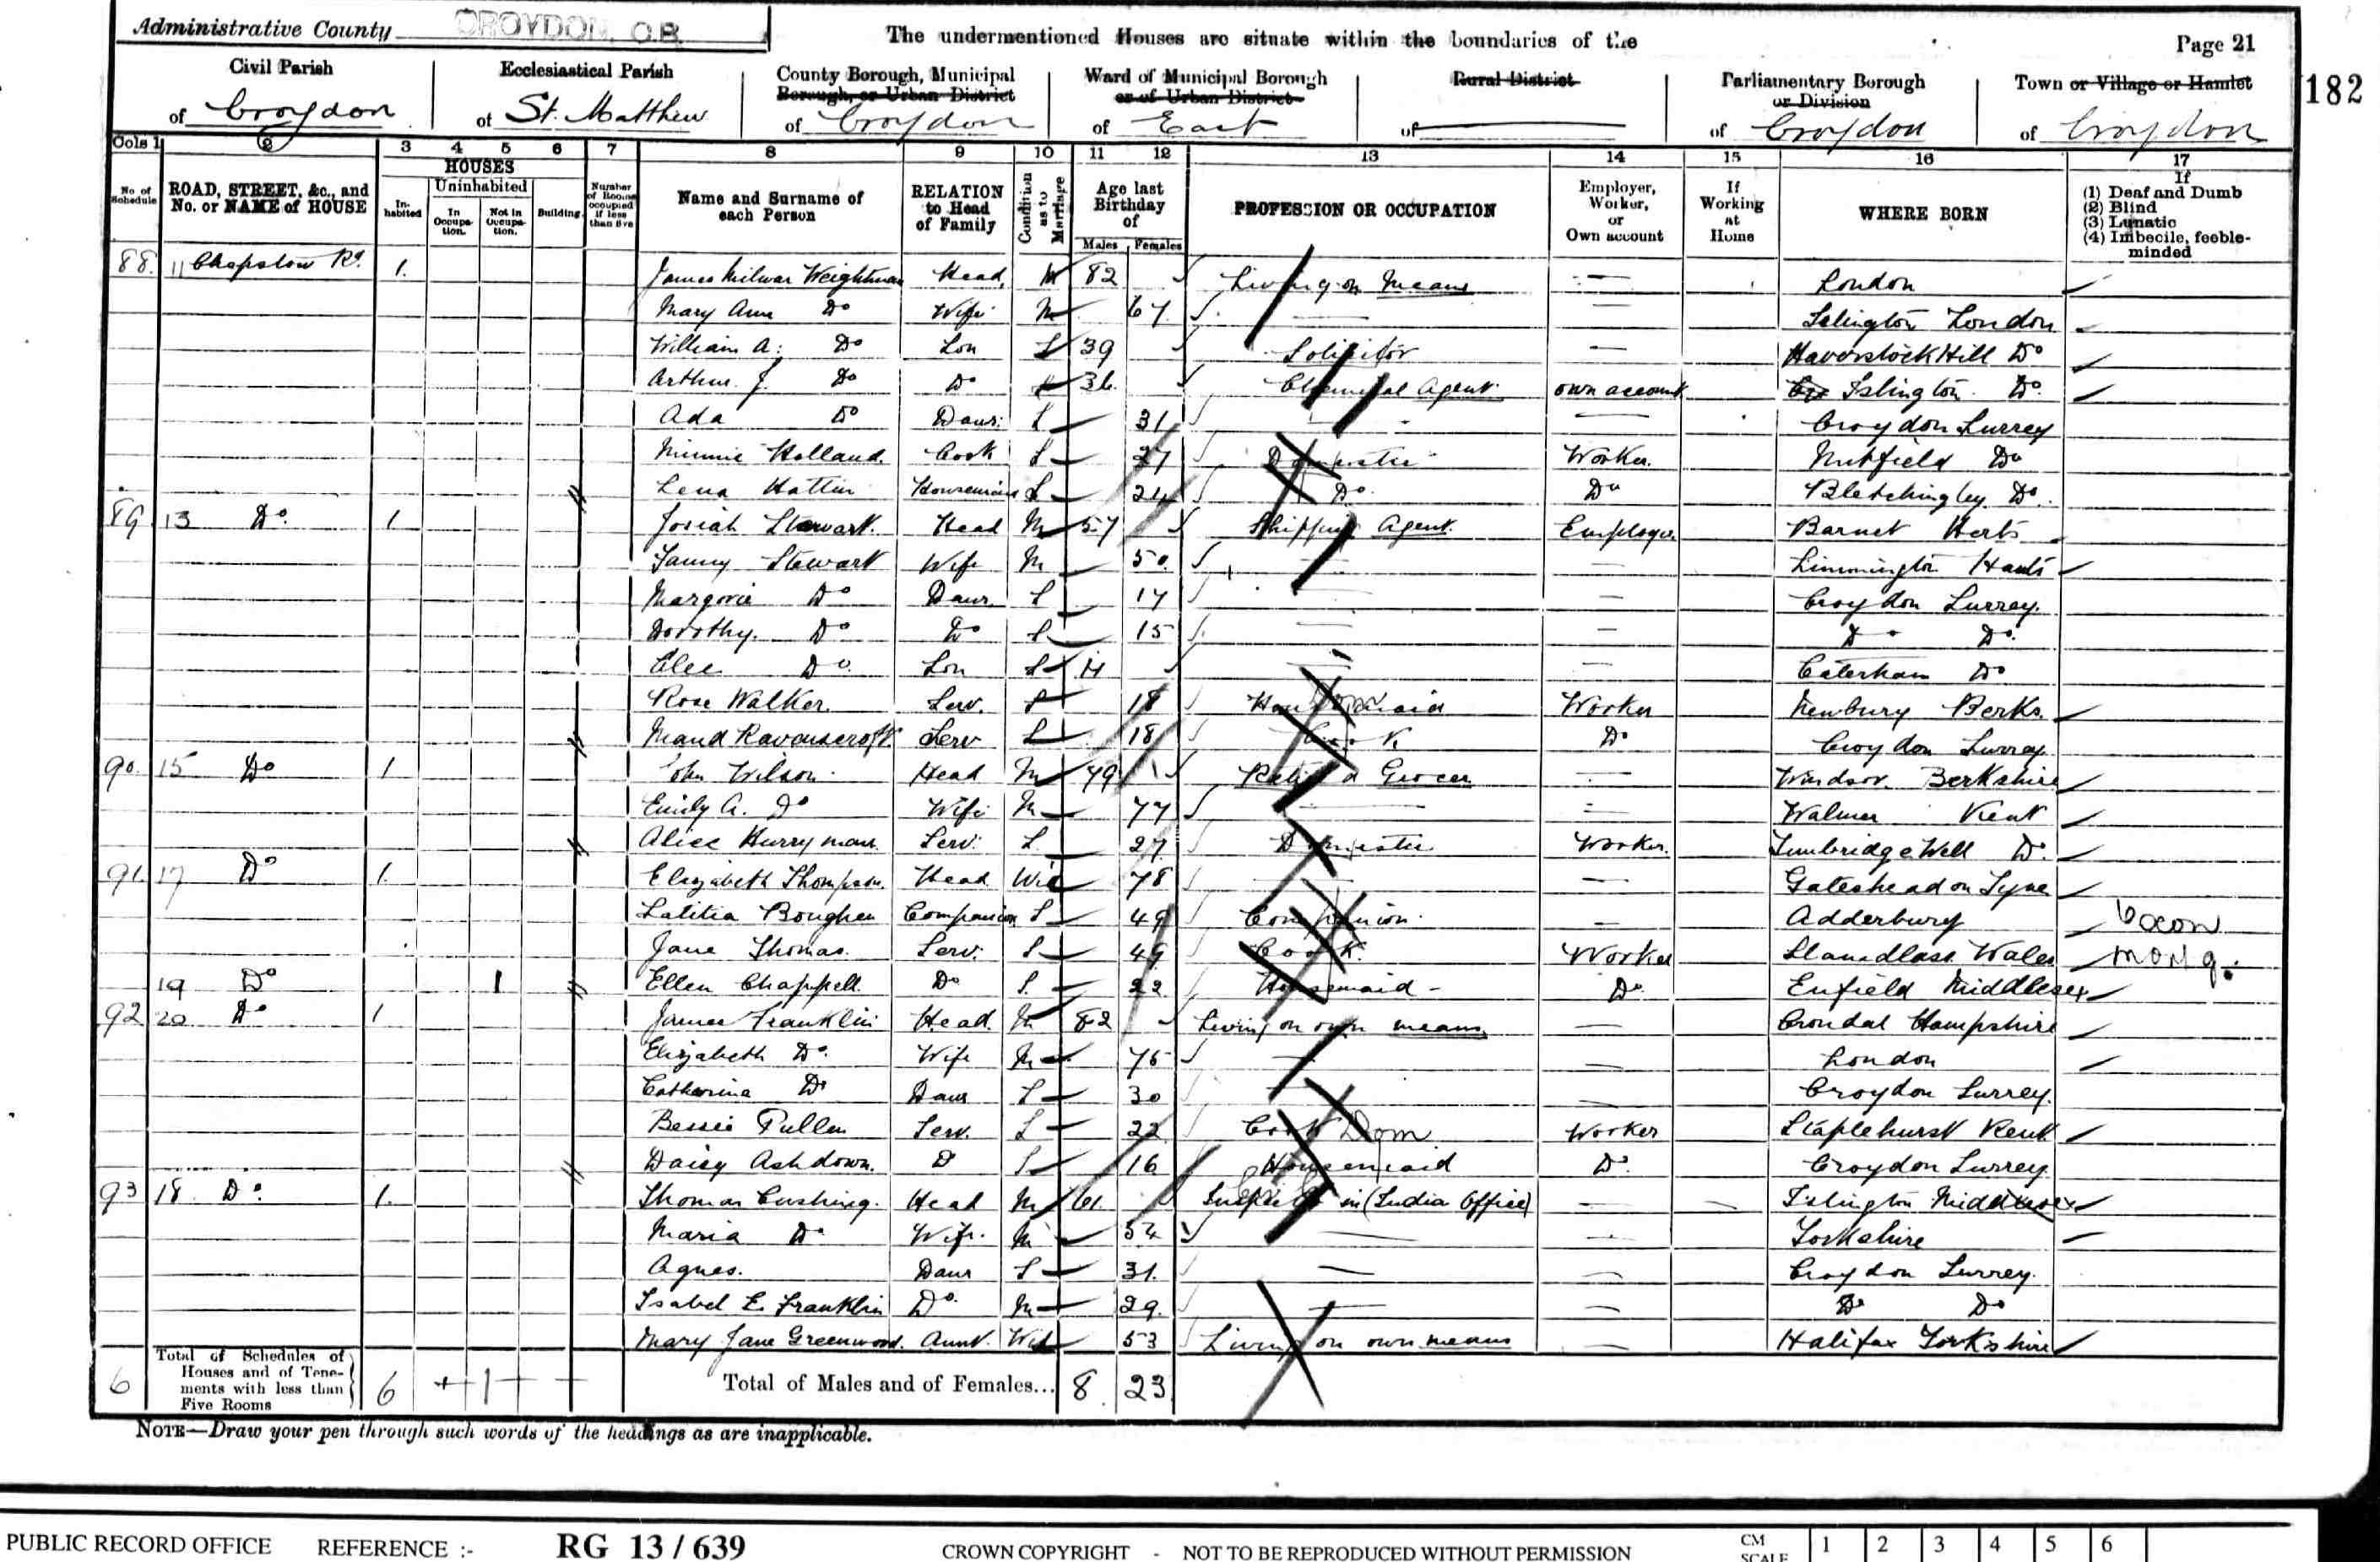 Administrative County CROYDON, C.B.
The undermentioned Houses are situate within the boundaries of the
Page 21
182
Civil Parish of Croydon
Ecclesiastical Parish of St. Matthew
County Borough, Municipal Borough, or Urban District of Croydon
Ward of Municipal Borough or of Urban District of East
Rural District of
Parliamentary Borough or Division of Croydon
Town or Village or Hamlet of Croydon
Cols 1 2 3 4 5 6 7 8 9 10 11 12 13 14 15 16 17
No. of Schedule
ROAD, STREET, &c., and No. or NAME of HOUSE
HOUSES
Inhabited
Uninhabited
In Occupation.
Not in Occupation.
Building
Number of Rooms occupied if less than five
Name and Surname of each Person
RELATION to Head of Family
Condition as to Marriage
Age last Birthday of
Males Females
PROFESSION OR OCCUPATION
Employer, Worker, or Own account
If Working at Home
WHERE BORN
If
(1) Deaf and Dumb
(2) Blind
(3) Lunatic
(4) Imbecile, feeble-minded
88. 11 Chepstow Rd. 1. James Milwar Weightman Head, M 82 Living on Means — London
Mary Ann Do Wife M 67 — — Islington London
William A. Do Son S 39 Solicitor — Haverstock Hill Do
Arthur J. Do Do S 36 Chemical Agent own account Islington Do.
Ada Do Daur. S 31 — Croydon Surrey
Minnie Holland. Cook S 27 Domestic Worker. Nutfield Do
Lena Housemaid S 24 Do. Do Bletchingley Do.
89. 13 Do. 1 Josiah Stewart. Head M 57 Shipping Agent. Employer Barnet Herts
Fanny Stewart Wife M 50. — — Limmington Hants
Margorie Do Daur. S 17 — Croydon Surrey.
Dorothy. Do Do S 15 — — Do Do.
Alec Do. Son S 14 — — Caterham Do
Rose Walker. Serv. S 18 Housemaid Worker Newbury Berks.
Maud Ravenscroft. Serv S 18 Cook Do Croydon Surrey
90. 15 Do 1 John Wilson. Head M 79 Retired Grocer — Windsor. Berkshire
Emily A. Do Wife M 77 — — Walmer Kent
Alice Harryman. Serv. S. 27 Domestic Worker. Tunbridge Well Do.
91. 17 Do 1. Elizabeth Thompson. Head Wid 78 — — Gateshead on Tyne
Latitia Boughen Companion S 49 Companion. — Adderbury Oxon
Jane Thomas. Serv. S 49 Cook. Worker Wales Montg.
19 Do 1 Ellen Chappell Do S. 22 Housemaid - Do. Enfield Middlesex
92 20 Do 1 James Franklin Head. M 82 Living on own means — Crondal Hampshire
Elizabeth Do. Wife M 75 — — London
Catherine Do Daur S 30 — — Croydon Surrey.
Bessie Pullen Serv. S 22 Cook Dom Worker Staplehurst Kent
Daisy Ashdown. D S 16 Housemaid Do. Croydon Surrey
93 18 Do. 1. Thomas Cushing. Head M 61. in (India Office) — Islington Middlesex
Maria Do Wife. M 54 — — Yorkshire
Agnes. Daur S 31. — — Croydon Surrey.
Isabel E. Franklin Do. M 29. — — Do Do
Mary Jane Greenwood. Aunt. Wid 53 Living on own means — Halifax Yorkshire
6 Total of Schedules of Houses and of Tenements with less than Five Rooms 6 1 Total of Males and of Females... 8. 23
NOTE—Draw your pen through such words of the headings as are inapplicable.
PUBLIC RECORD OFFICE REFERENCE :- RG 13 / 639 CROWN COPYRIGHT - NOT TO BE REPRODUCED WITHOUT PERMISSION CM SCALE 1 2 3 4 5 6